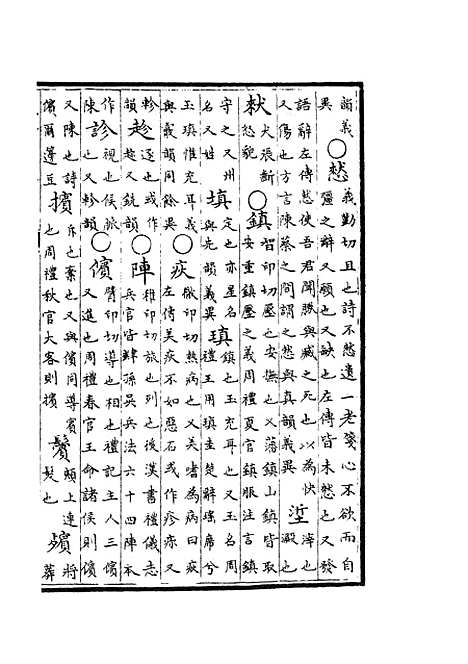 韻義異○憖義勤切且也詩不憖遺一老箋心不欲而自彊之辭又願也又缺也左傳皆未憖也又發
語辭左傳憖使吾君聞勝與臧之死也以為快又傷也方言陳蔡之間謂之憖與真韻義異垽滓也澱也
猌犬張齗怒貌○鎮智印切壓也安撫也又藩鎮山鎮皆取安重鎮壓之義周禮夏官鎮服注言鎮
守之又州名又姓填定也亦星名與先韻義異瑱鎮也玉充耳也又玉名周禮王用瑱圭楚辭瑤席兮
玉瑱惟充耳義與霰韻同餘異○疢印切熱病也又美嗜為病曰疢左傳美疢不如惡石或作疹又
軫韻趁逐也或作趂又銑韻○陣雉印切旅也列也後漢書禮儀志兵官皆肄孫吳兵法六十四陣本
作陳診視也候脈也又軫韻○儐臂印切導也相也禮記主人三儐又進也周禮春官王命諸侯則儐
又陳也詩儐爾籩豆擯斥也棄也又與儐同導賓也周禮秋官大客則擯鬢頰上連髮也殯將葬